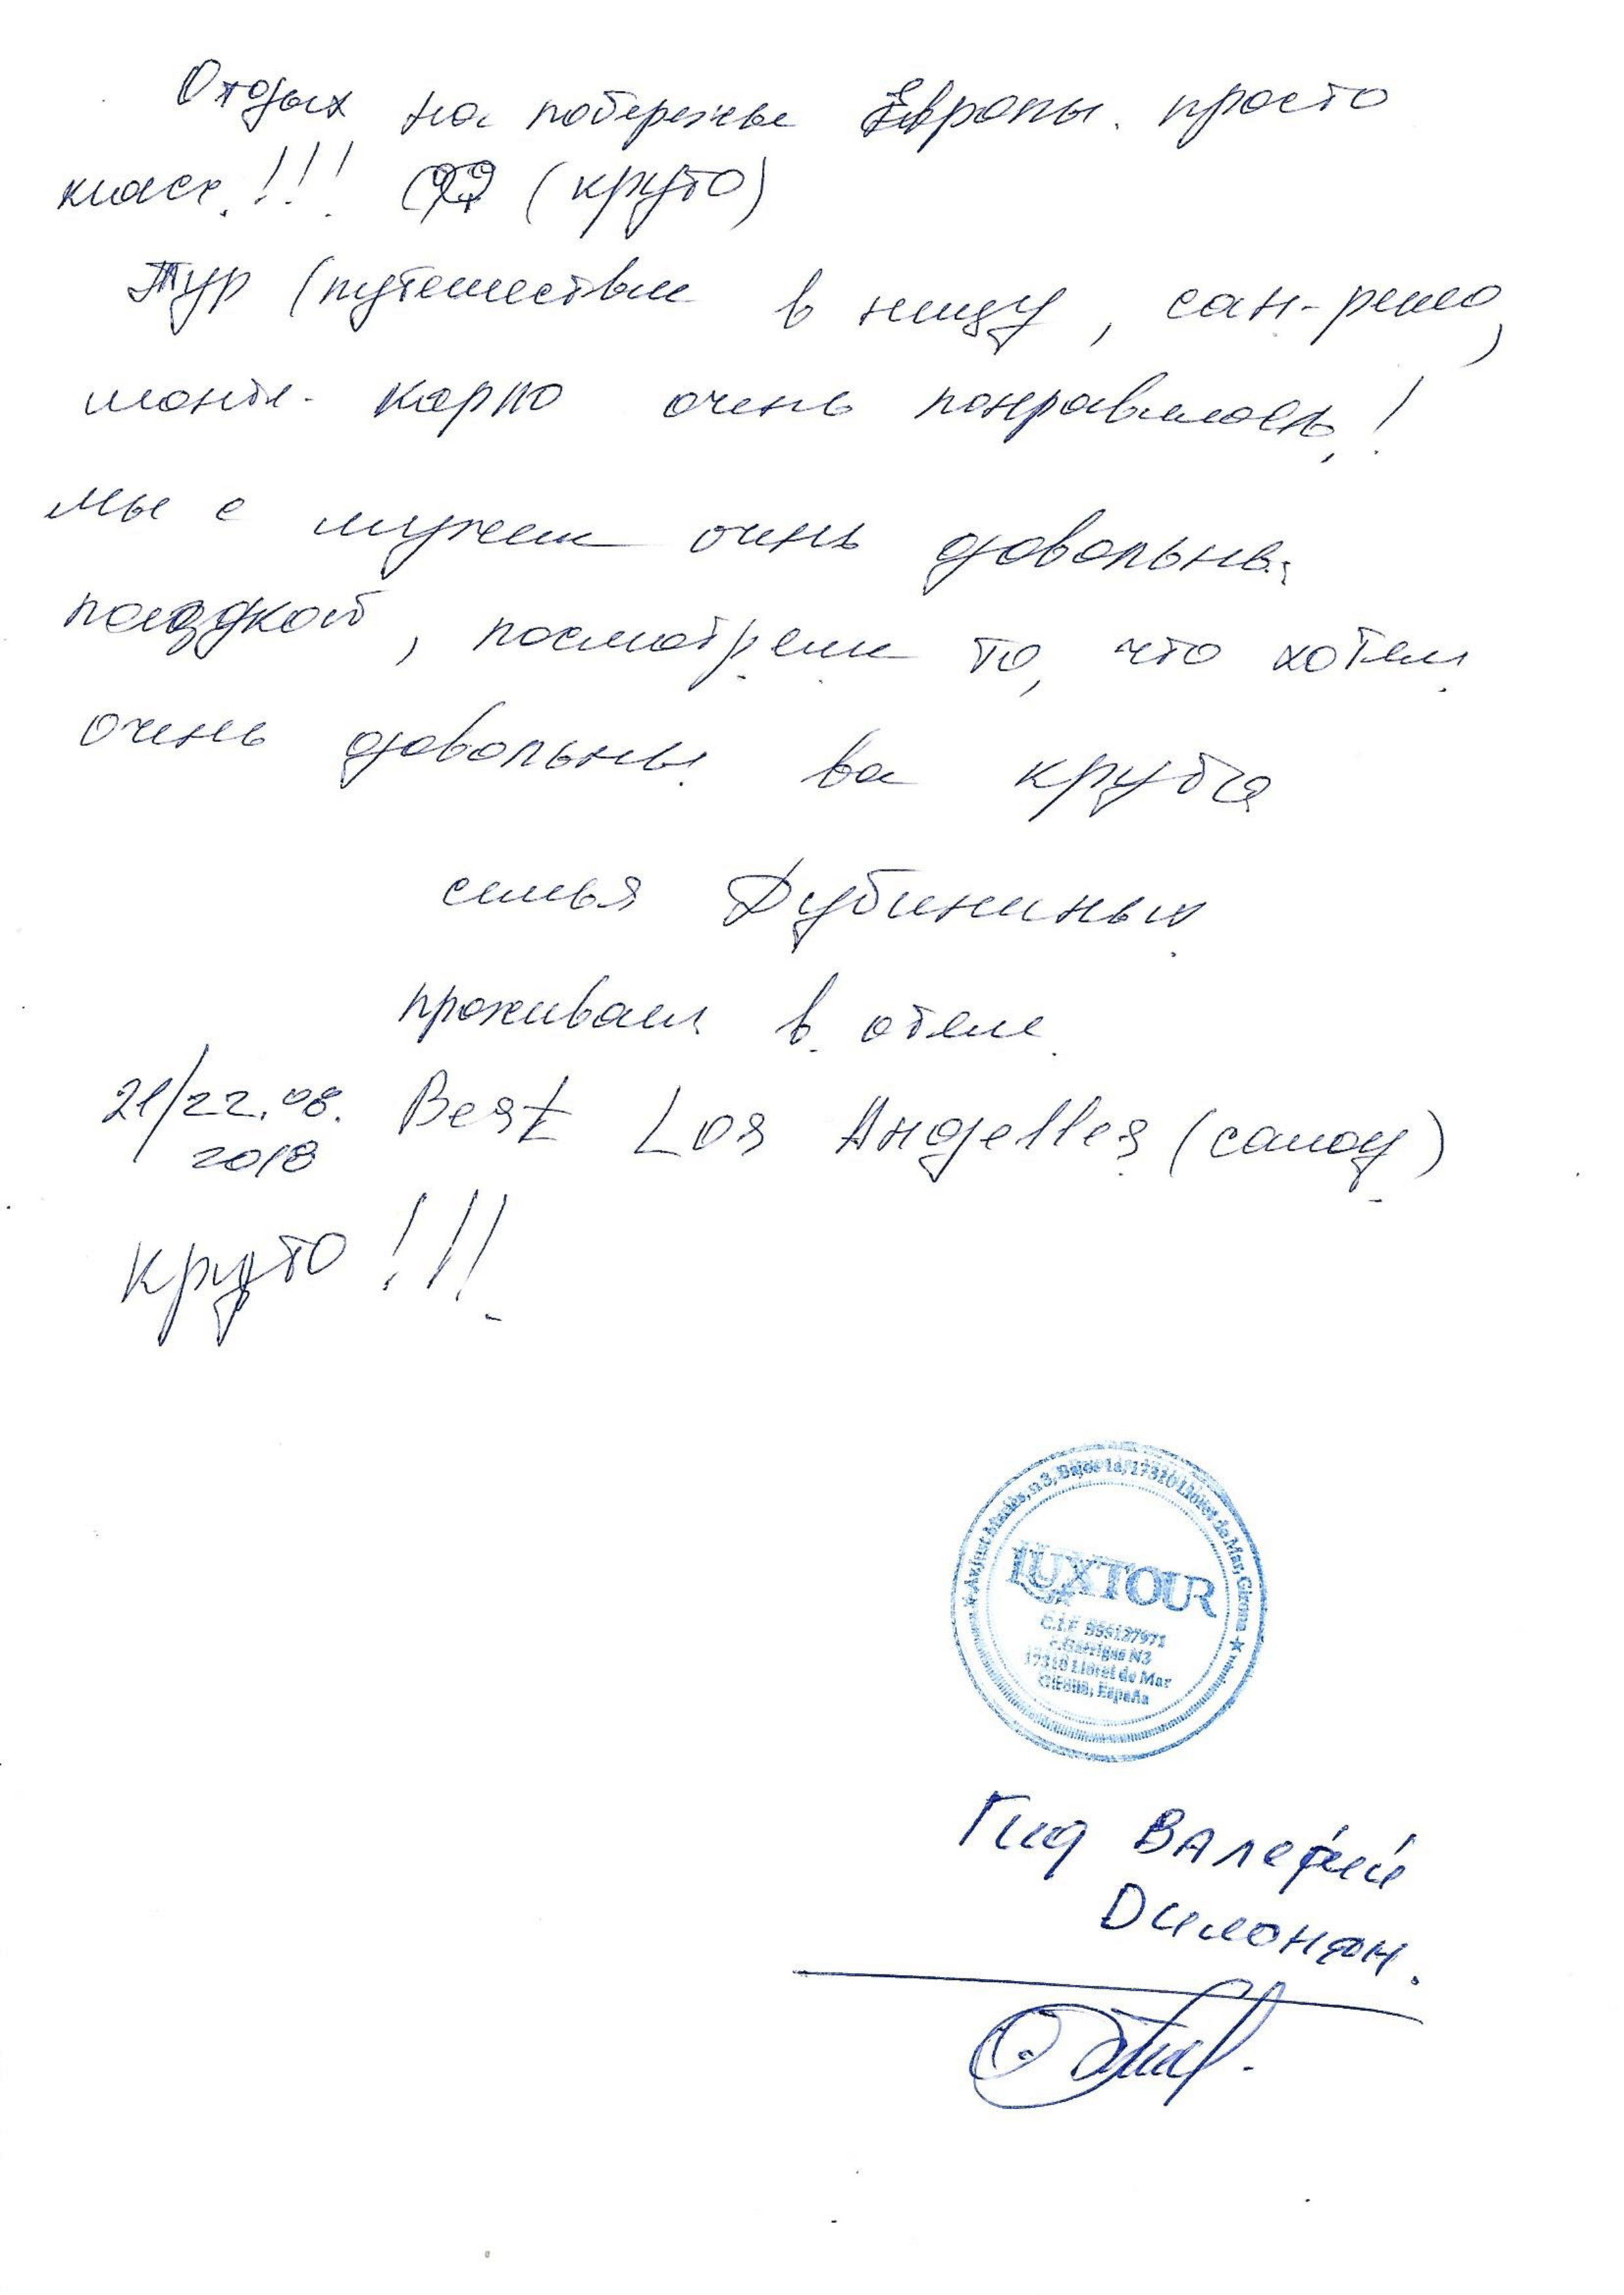 Отдых на побережье Европы. просто
класс!!! (круто)
Тур (путешествие в ниццу, сан-ремо,
монте-карло очень понравилось!
мы с мужем очень довольны
поездкой, посмотрели то, что хотели
очень довольны ва круто
семья Дубининых
проживали в отеле
21/22.08. Best Los Angelles (салоу)
2018
круто!!!
Av. Just Marlès, n 3, Bajos 1a, 17310 Lloret de Mar, Girona
LUXTOUR
17310 Lloret de Mar
Girona, España
Гид Валерий
Димонян.